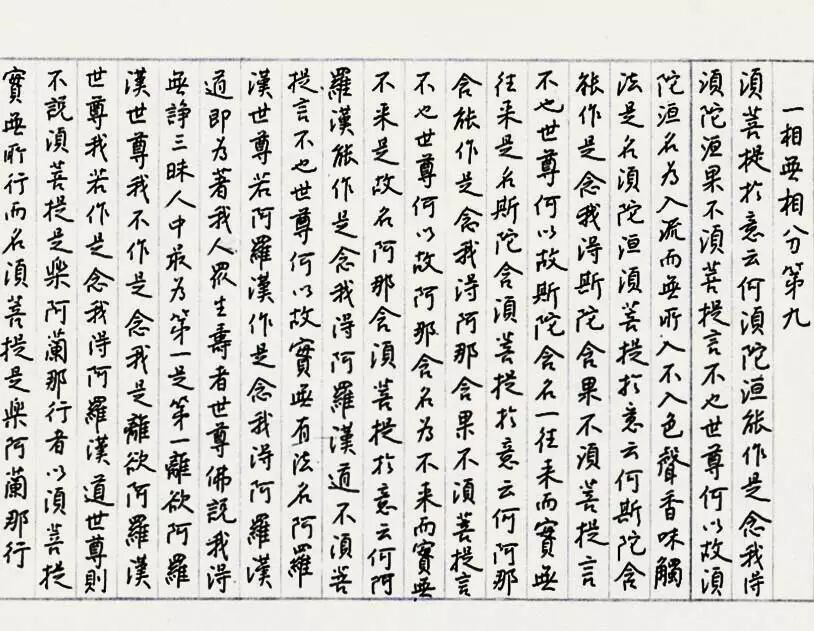 一相無相分第九
須菩提於意云何須陀洹能作是念我得
須陀洹果不須菩提言不也世尊何以故須
陀洹名為入流而無所入不入色聲香味觸
法是名須陀洹須菩提於意云何斯陀含
能作是念我得斯陀含果不須菩提言
不也世尊何以故斯陀含名一往来而實無
往来是名斯陀含須菩提於意云何阿那
含能作是念我得阿那含果不須菩提言
不也世尊何以故阿那含名為不来而實無
不来是故名阿那含須菩提於意云何阿
羅漢能作是念我得阿羅漢道不須菩
提言不也世尊何以故實無有法名阿羅
漢世尊若阿羅漢作是念我得阿羅漢
道即為著我人眾生壽者世尊佛說我得
無諍三昧人中最為第一是第一離欲阿羅
漢世尊我不作是念我是離欲阿羅漢
世尊我若作是念我得阿羅漢道世尊則
不說須菩提是樂阿蘭那行者以須菩提
實無所行而名須菩提是樂阿蘭那行